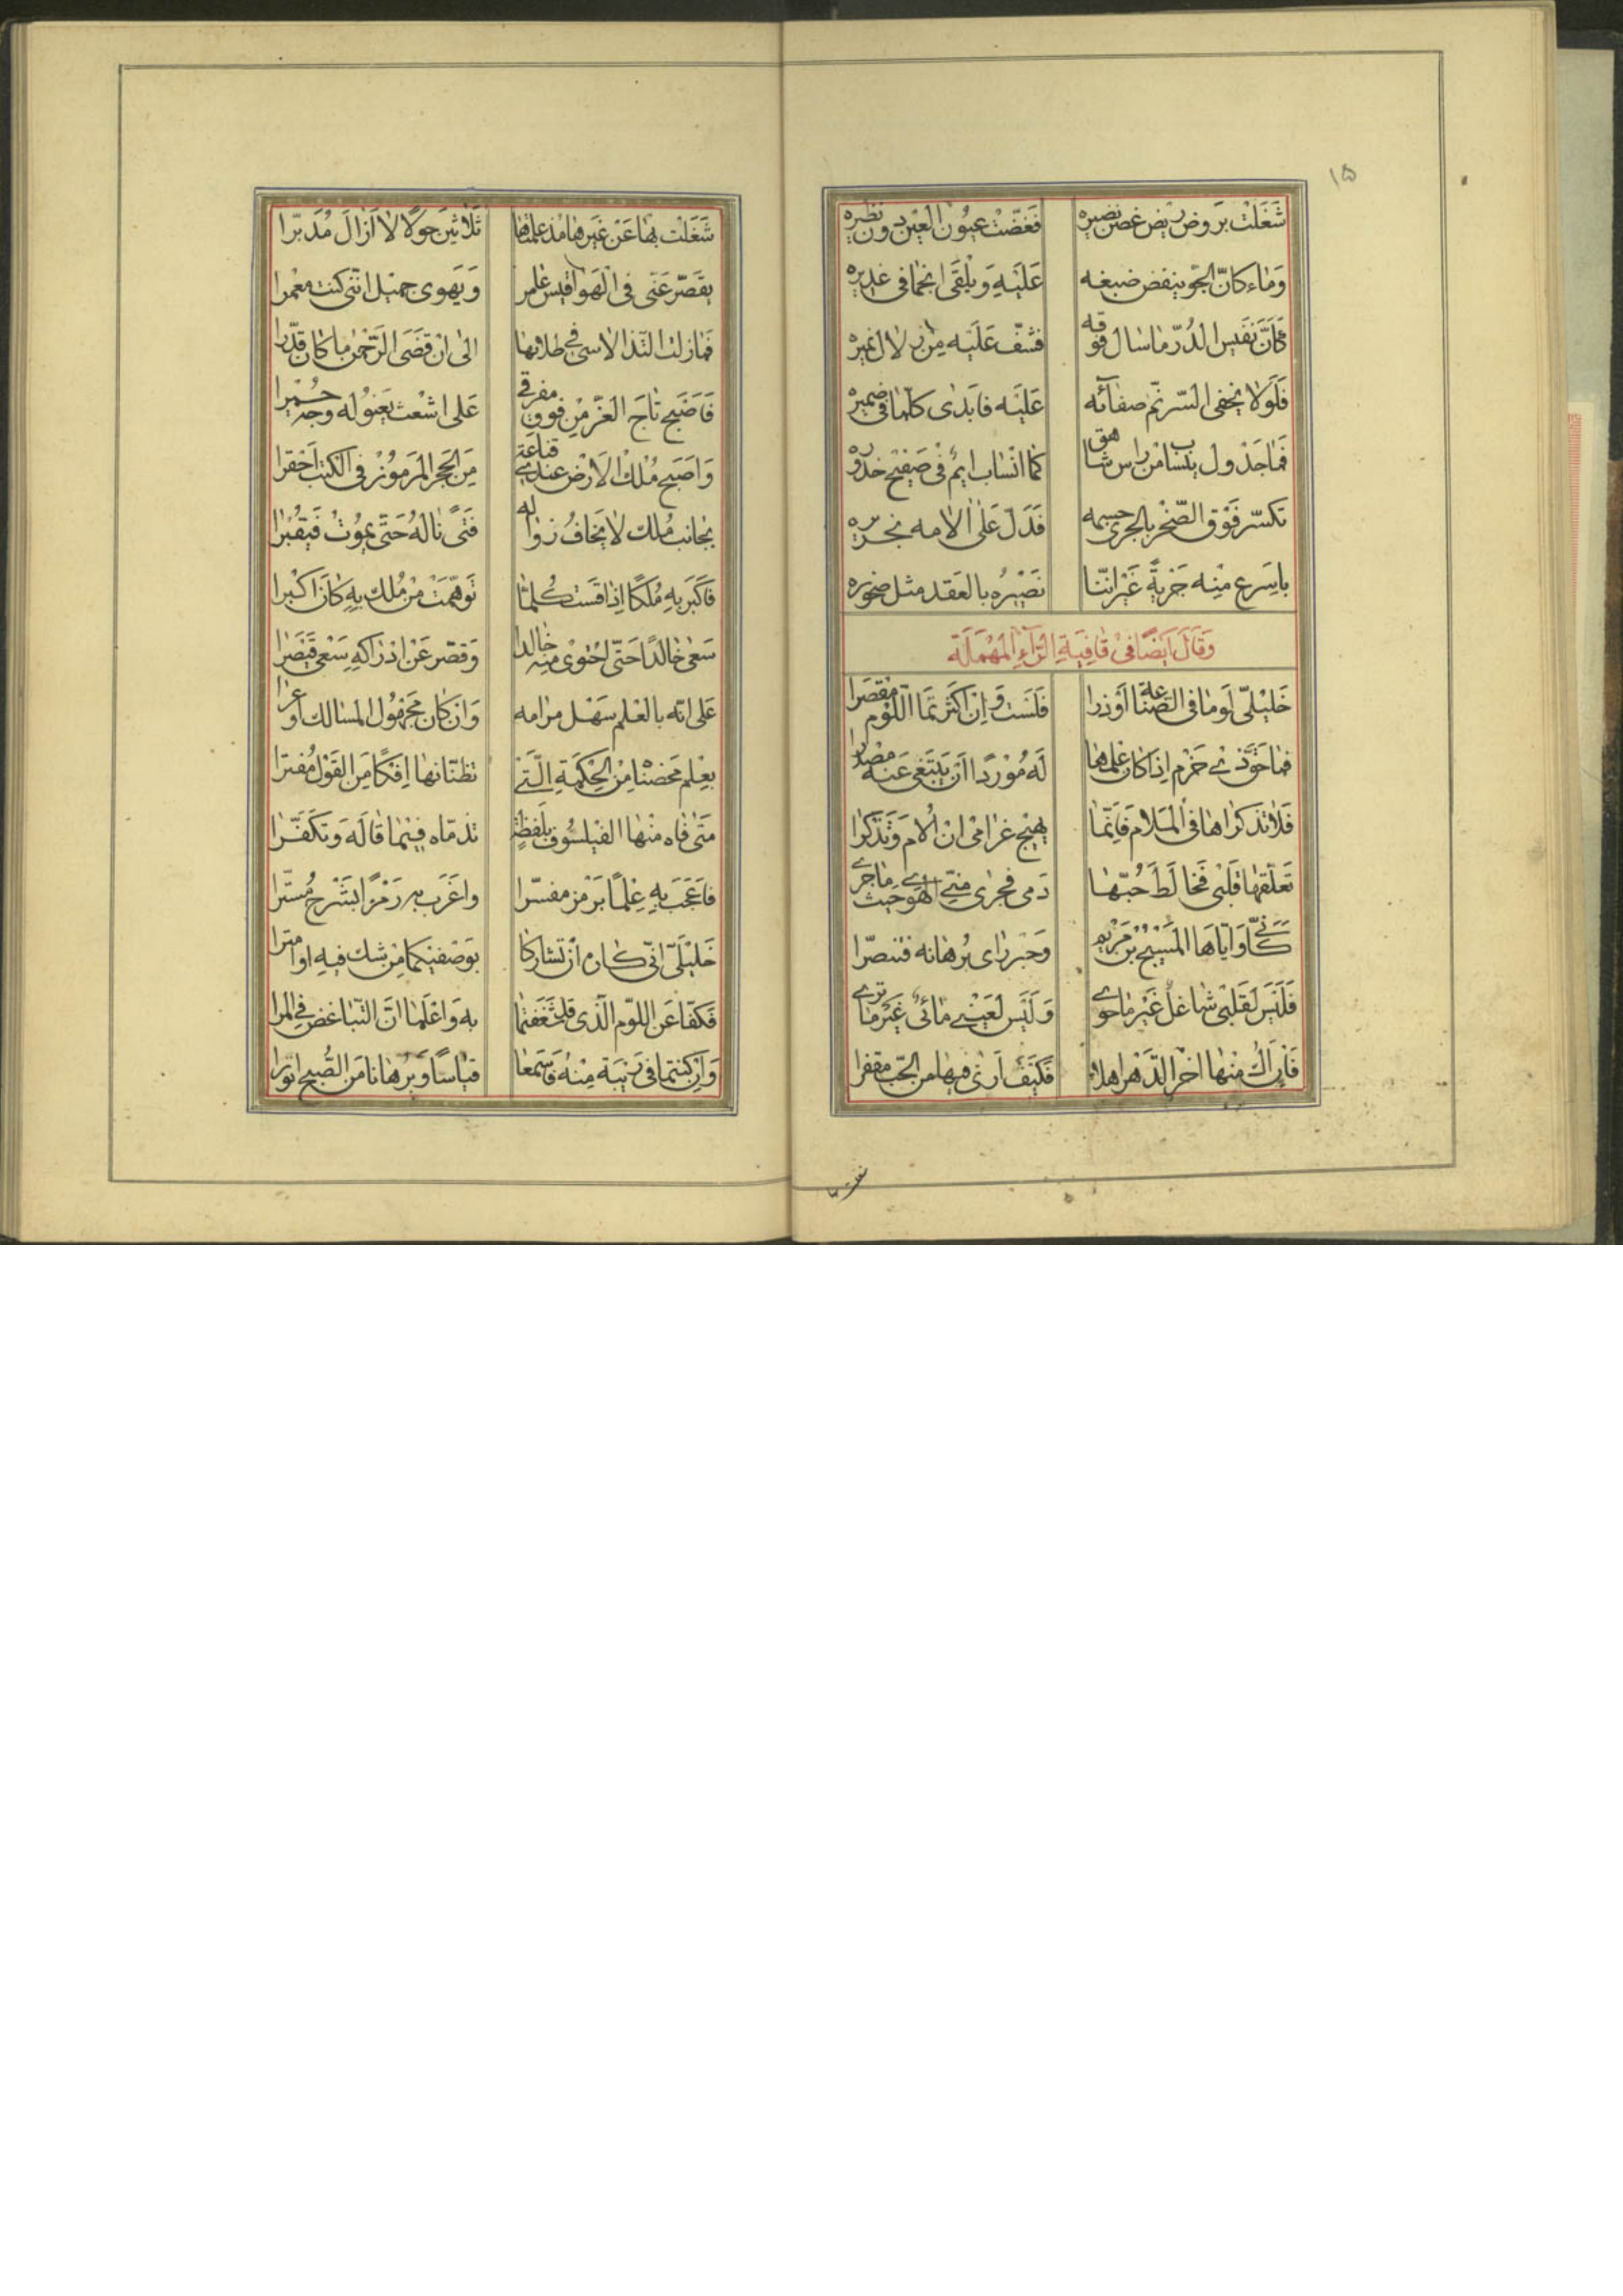 ١٥
شَغَلَتْ بَروض بيض غصن نضيره فَغَضّتْ عيُون العَين دون نظيره
وَمٰاء كانّ الجو ينفض ضبغه عَلَيهِ وَيلْقَى انجمًا فى غديره
كَانّ نَفَيس الدُرّ مٰا سٰال فوقه فشفّ عَلَيْه مِن زلال نميره
فَلَولا يخفى السّر نمّ صفآئه عَلَيْه فابَدى كلّما فى ضميره
فَمٰا جَدْول ينسٰاب من رٰاس شٰاهق كما انْسٰاب ايم فى صَفيْح خدوره
تكسّر فَوْق الصّخْر بالجرى جسمه فَدَلّ عَلىٰ الامه بخريره
باسَرع مِنْه جَريةً غَيْر انّنا نصَيْرُه بالعَقد مثل صخوره
وَقالَ اَيضًا فىْ قٰافِيَةِ الرّآءِ المُهْمَلَة
خَليْلىّ لَومٰا فى الصّنٰاعة اَوْ ذرا فَلَسْت وَاِنْ اكثرتمَا اللّوْم مقْصرا
فمٰا حَوّذىْ حَزْم اِذا كٰان علمهٰا لَه مُوْردًا اَنْ يَبْتَغى عَنه مصْدرا
فَلاٰ تذكرٰاهٰا فى المَلاٰم فَانّمٰا يهيّج غرٰامىْ انْ اُلام وَتذكرٰا
تَعَلّقهٰا قَلْبى فَخٰالَطَ حُبّهٰا دَمى فجرٰى منّى الهوٰى حَيْث مٰا جرىٰ
كَانّى وَايّاهَا المَسيْح بن مَرْيم وَحَبْر رٰاى بُرهٰانه فتنصّرا
فَلَيْسَ لقَلبْى شٰاغلٌ غَيْر مٰا حوىٰ وَلَيْس لعَيْنىْ مٰائىٌ غَيْر مٰا ترىٰ
فَاِنْ اَكُ منْهٰا اخر الدّهْر اهلا فكَيْفَ اَرىٰ فيهٰا من الحبّ مقفرا
شغلت بها
شَغَلْت بهٰا عَنْ غَيرهٰا مُذ علمْتهٰا ثَلاٰثيْنَ حَولًا لاٰ اَزٰالَ مُدَبّرا
يقَصّر عَنّى فى الهَوٰا قيْس عٰامر وَيَهوى جميْل انّنى كنت معْمرا
فَمٰا زلت التّذ الاسى فى طلابهٰا الى انْ قضَى الرّحْمٰن مٰا كٰان قدّرا
فَاَصْبح تٰاج العَزّ منْ فوق مفرقى عَلى اشعْث يَعنوُ له وجه حُمْيرا
وَاَصبح مُلْك الاَرْض عندى قنٰاعة مِنَ الحَجر المَرموُز فى الكتب احَقرا
بجٰانب مُلك لاٰ يَخٰافُ زوٰاله فَتىً نٰالهُ حَتّى يمُوتُ فيقْبُرٰا
فاَكَبر بهِ مُلكًا اِذٰا قَسْت كُلّمٰا توهّمت منْ مُلك بهِ كٰانَ اكْبرا
سَعىٰ خٰالدًا حَتّى احْتوىٰ منه خٰالدا وَقصّر عَنْ ادْرٰاكهِ سَعى قيَصَرٰا
عَلى انّه بالعْلم سَهْل مرٰامه وَانْ كٰان مَجْهُول المسٰالك اوعرٰا
بعِلم مَحضْنٰاه مِنْ الحِكْمَةِ الّتى تظنّانهٰا اِفكًا مِنَ القَوْل مُفترا
مَتىٰ فٰاه منْهٰا الفيْلسُوف بلَفظةٍ تذمّاه فيْمٰا قٰالَه وَتكَفَّرا
فاَعَجَب بهِ عِلْمًا بَرمْز مفسّرا واغَرب به رَمْزًا بشَرْح مُستّرا
خَليْلَىّ انّى كٰاره اَنْ تشٰاركا بوَصْفيْكمٰا مِنْ شك فيهِ او امترا
فكَفّا عَن اللوْم الّذى قد شغفتمٰا به وَاعْلَمٰا انّ التبٰاغض فى المرا
وَاِنْ كنتمٰا فى رَيْبَة مِنْهُ فَاسَمعٰا قيٰاسًا وَبُرهٰانا مِنَ الصّبْح انورٰا